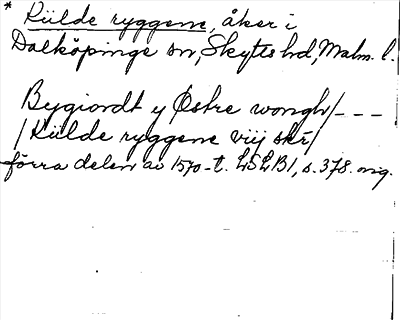 * Külde ryggene, åker i
Dalköpinge sn, Skytts hd, Malm. l.
Bygiordt y Østre wongh/ - - -
/ Külde ryggene viij skr/
förra delen av 1570-t. LSLB1, s. 378. orig.